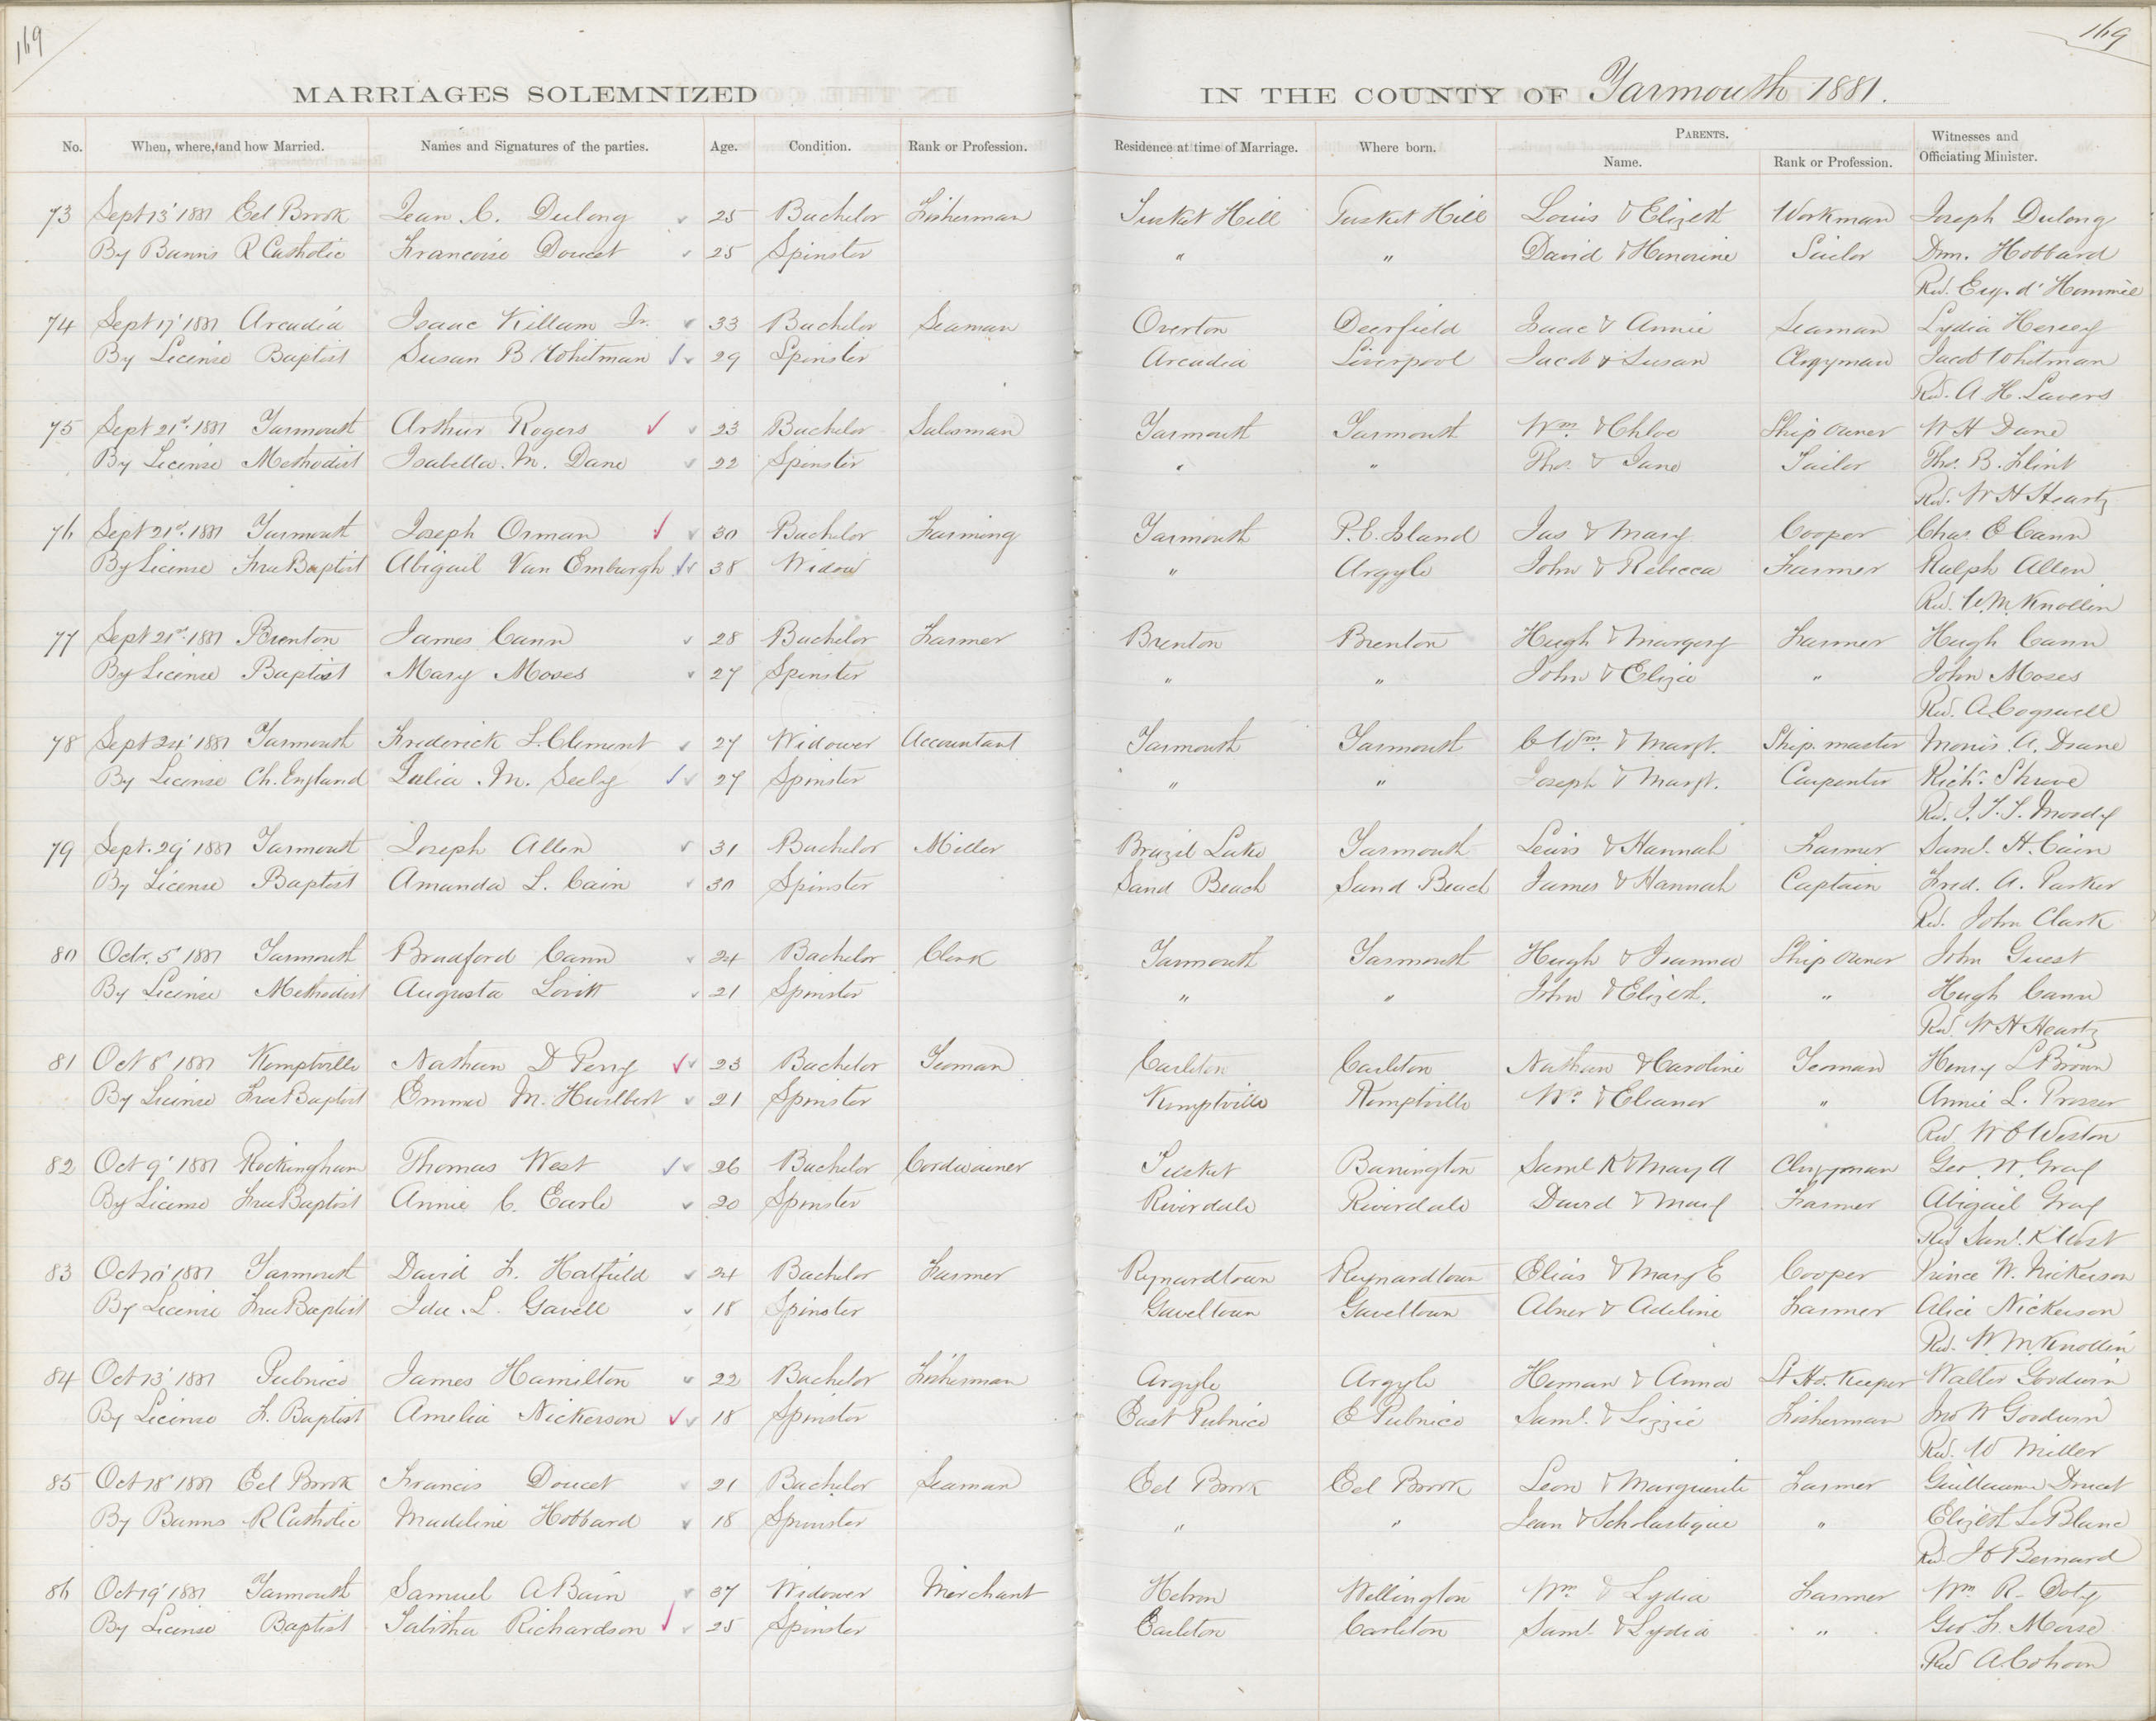 169
169
MARRIAGES SOLEMNIZED IN THE COUNTY OF Yarmouth 1881.
No. When, where, and how Married. Names and Signatures of the parties. Age. Condition. Rank or Profession. Residence at time of Marriage. Where born. PARENTS. Name. Rank or Profession. Witnesses and Officiating Minister.
73 Sept 13' 1881 Eel Brook Jean C. Dulong 25 Bachelor Fisherman Tusket Hill Tusket Hill Louis & Elizth Workman Joseph Dulong
By Banns R Catholic Francoise Doucet 25 Spinster " " David & Honorine Sailor Hobbard
Rev.
74 Sept 17' 1881 Arcadia Isaac Killam Jr. 33 Bachelor Seaman Overton Deerfield Isaac & Annie Seaman Lydia Hersey
By License Baptist Susan B Whitman 29 Spinster Arcadia Liverpool Jacob & Susan Clergyman Jacob Whitman
Rev. A. H. Lavers
75 Sept 21st 1881 Yarmouth Arthur Rogers 23 Bachelor Salesman Yarmouth Yarmouth Wm & Chloe Ship Owner W H Dane
By License Methodist Isabella. M. Dane 22 Spinster " " Thos. & Jane Thos. B. Flint
Rev. W H Heartz
76 Sept 21st 1881 Yarmouth Joseph Orman 30 Bachelor Farming Yarmouth P. E. Island Jas & Mary Cooper Chas. E Cann
By License Free Baptist Abigail Van Emburgh 38 Widow " Argyle John & Rebecca Farmer Ralph Allen
Rev. W M Knollin
77 Sept 21st 1881 Brenton James Cann 28 Bachelor Farmer Brenton Brenton Hugh & Margery Farmer Hugh Cann
By License Baptist Mary Moses 27 Spinster " " John & Eliza " John Moses
Rev. A. Cogswell
78 Sept 24' 1881 Yarmouth Frederick L. Clement 27 Widower Accountant Yarmouth Yarmouth C Wm. & Margt. Ship. master A. Drane
By License Ch. England Julia. M. Seely 27 Spinster " " Joseph & Margt. Carpenter Richd. Shreve
Rev. J. T. T. Moody
79 Sept. 29' 1881 Yarmouth Joseph Allen 31 Bachelor Miller Brazil Lake Yarmouth Lewis & Hannah Farmer Saml. H. Cain
By License Baptist Amanda L. Cain 30 Spinster Sand Beach Sand Beach James & Hannah Captain Fred. A. Parker
Rev. John Clark
80 Octr. 5' 1881 Yarmouth Bradford Cann 24 Bachelor Clerk Yarmouth Yarmouth Hugh & Joanna Ship Owner John Guest
By License Methodist Augusta Lovitt 21 Spinster " " John & Elizth. " Hugh Cann
Rev W H Heartz
81 Oct 8' 1881 Kemptville Nathan D Perry 23 Bachelor Yeoman Carleton Carleton Nathan & Caroline Yeoman Henry L Brown
By License Free Baptist Emma M. Hurlbert 21 Spinster Kemptville Kemptville Wm & Eleanor " Annie L. Prosser
Rev W C Weston
82 Oct 9' 1881 Rockingham Thomas West 26 Bachelor Cordwainer Tusket Barrington Saml K & Mary A Clergyman Geo. W. Gray
By License Free Baptist Annie C. Earle 20 Spinster Riverdale Riverdale David & Mary Farmer Abigail Gray
Rev Saml. K West
83 Oct 10' 1881 Yarmouth David F. Hatfield 24 Bachelor Farmer Rynardtown Reynardtown Elias & Mary E Cooper Prince W. Nickerson
By License Free Baptist Ida. L. Gavell 18 Spinster Gaveltown Gaveltown Abner & Adeline Farmer Alice Nickerson
Rev. W. M. Knollin
84 Oct 13' 1881 Pubnico James Hamilton 22 Bachelor Fisherman Argyle Argyle Heman & Anna Lt Ho. Keeper Walter Goodwin
By License F. Baptist Amelia Nickerson 18 Spinster East Pubnico E Pubnico Saml. & Lizzie Fisherman Jno W Goodwin
Rev. W Miller
85 Oct 18' 1881 Eel Brook Francis Doucet 21 Bachelor Seaman Eel Brook Eel Brook Leon & Marguerite Farmer Guillaume Doucet
By Banns R Catholic Madeline Hobbard 18 Spinster " " Jean & Scholastique " Elizth LeBlanc
Rev. Bernard
86 Oct 19' 1881 Yarmouth Samuel A Bain 37 Widower Merchant Hebron Wellington Wm & Lydia Farmer Wm R. Doty
By License Baptist Tabitha Richardson 25 Spinster Carleton Carleton Saml. & Lydia " Geo F. Morse
Rev A. Cohoon